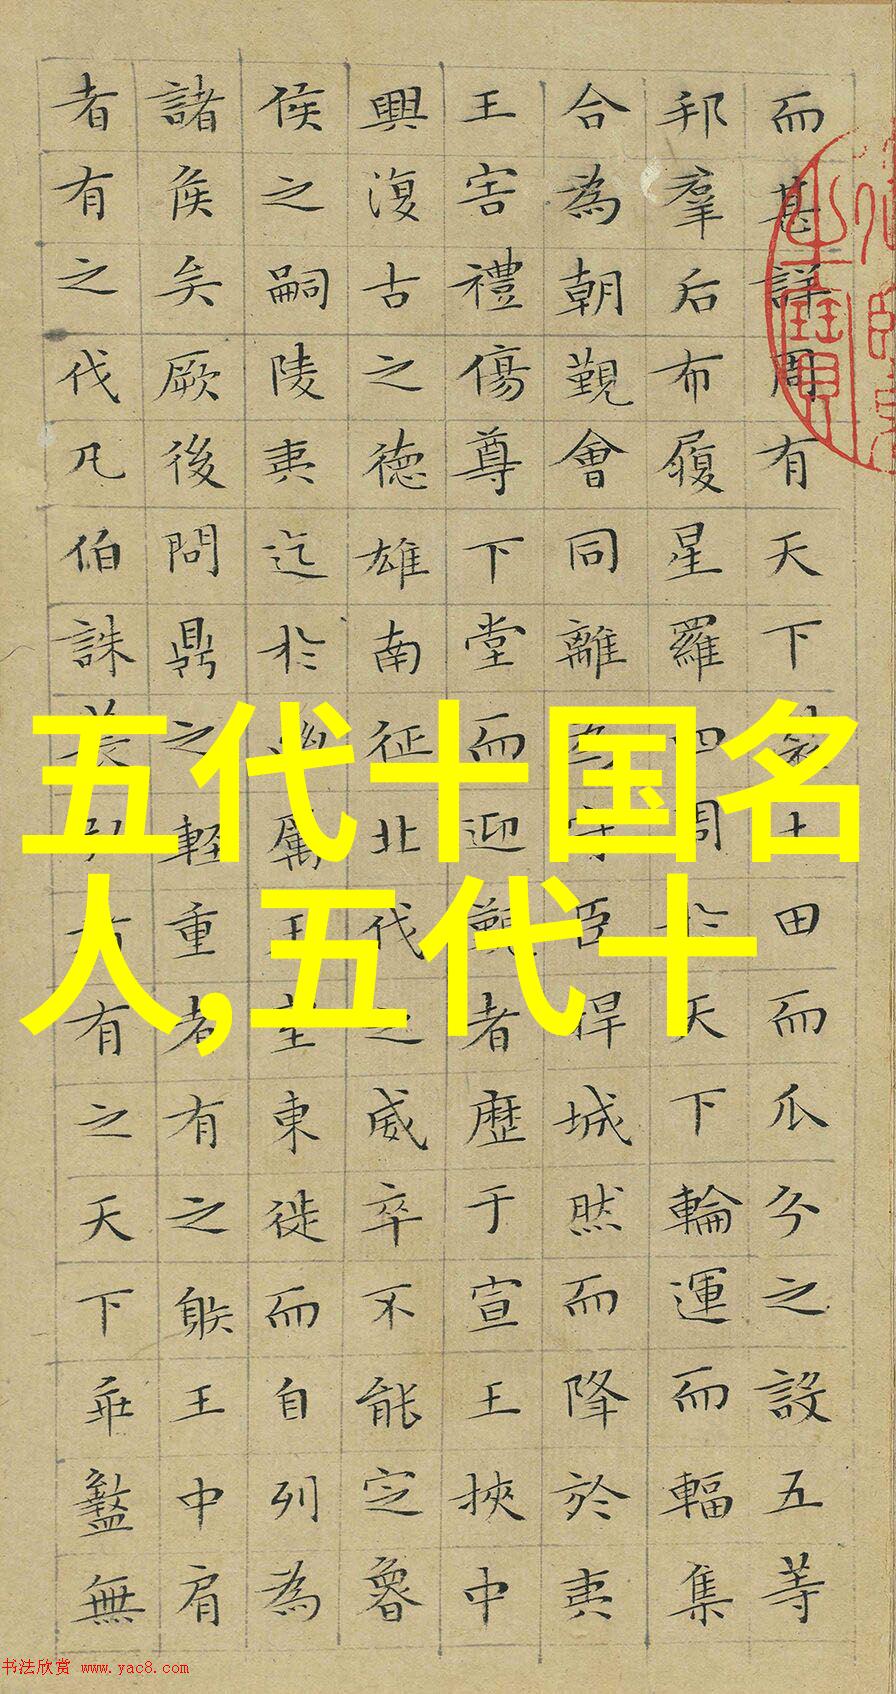 而甚詳周有天下裂土田而瓜分之設五等
邦羣后布履星羅四周於天下輪運而輻集
合為朝覲會同離為守臣捍城然而降於夷
王害禮傷尊下堂而迎覲者歷于宣王挾中
興復古之德雄南征北伐之威卒不能定魯
侯之嗣陵夷迄於幽厲王室東徙而自列為
諸侯矣厥後問鼎之輕重者有之䠶王中肩
者有之伐凡伯誅萇弘者有之天下乖盭無
五代十国名
人,五代十
书法欣赏 www.yac8.com